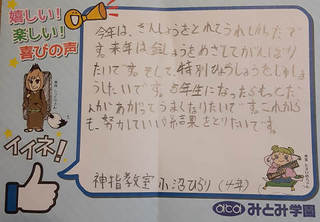 嬉しい!
楽しい!
喜びの声
今年は、きんしょうをとれてうれしかったで
す。来年は金しょうをめざしてがんばり
たいです。そして、特別ひょうしょうをしゅしょ
うしたいです。5年生になったらもっとだ
んがあがってうまくなりたいです。これから
も、努力していい結果をとりたいです。
イイネ!
神指教室 小沼ひらり (4年)
みとみ学園